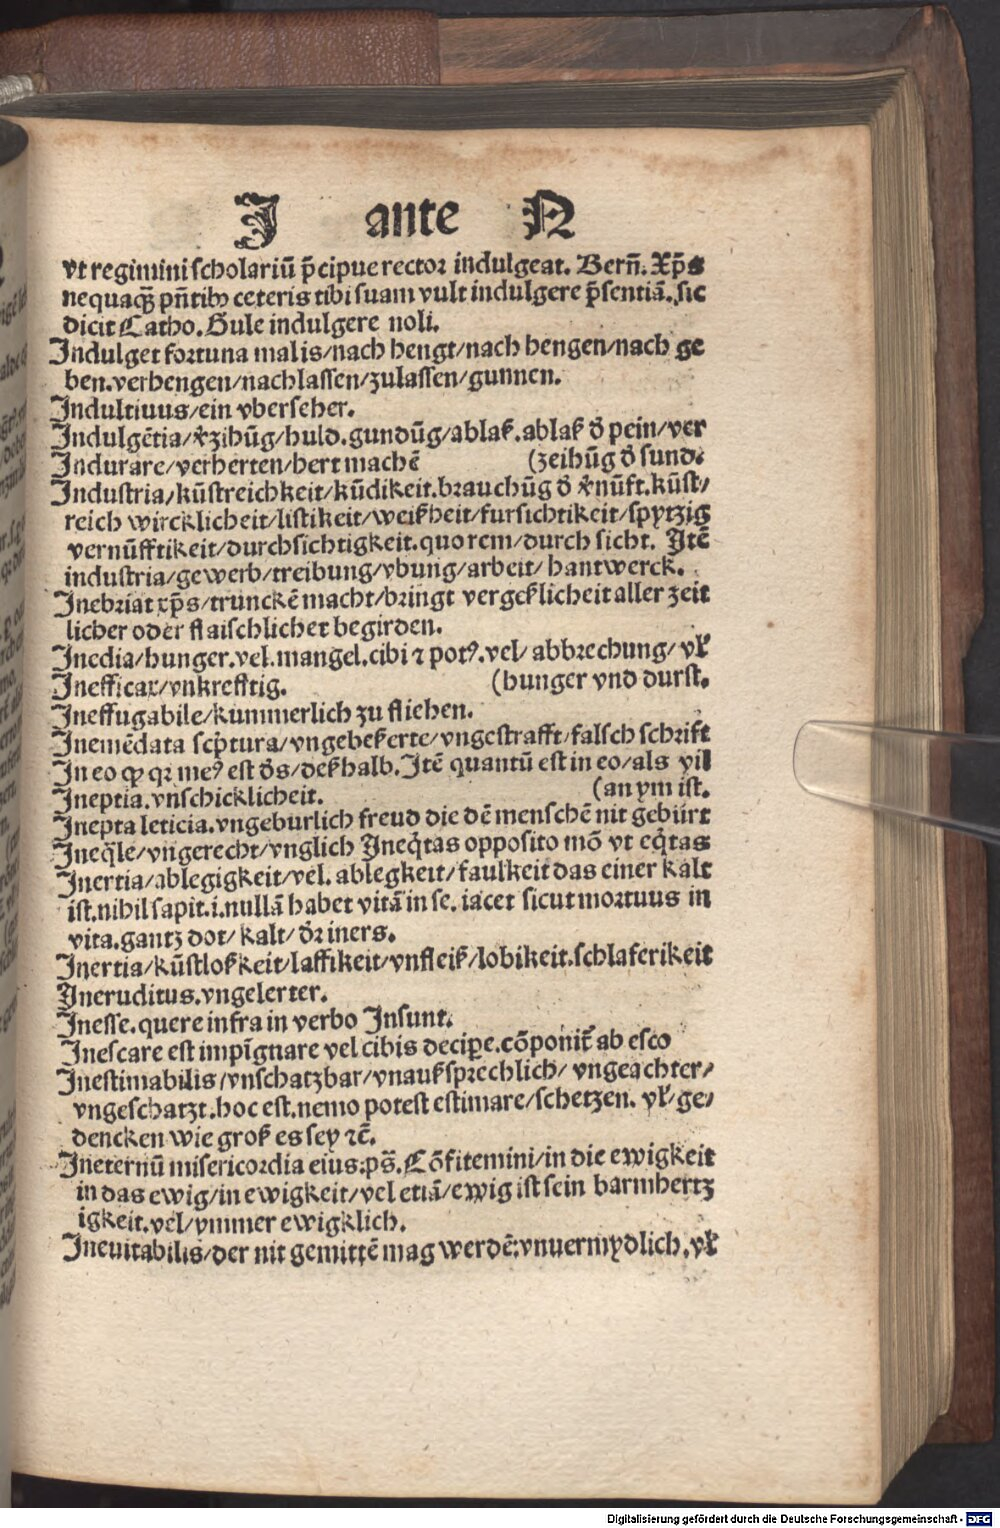 J ante N
vt regimini scholariū p̄cipue rector indulgeat. Berñ. Xp̄s
nequaq̄ pñtibꝰ ceteris tibi suam vult indulgere p̄sentiā. sic
dicit Catho. Gule indulgere noli.
Indulget fortuna malis/nach hengt/nach hengen/nach ge
ben.verhengen/nachlassen/zulassen/gunnen.
Indultiuus/ein vberseher.
Indulgētia/v̓zihūg/huld.gundūg/ablaß.ablaß d̓ pein/ver
Indurare/verherten/hert machē (zeihūg d̓ sund.
Industria/kūstreichkeit/kūdikeit.brauchūg d̓ v̓nūft.kūst/
reich wircklicheit/listikeit/weißheit/fursichtikeit/spytzig
vernūfftikeit/durchsichtigkeit.quorem/durch sicht. Itē
industria/gewerb/treibung/vbung/arbeit/hantwerck.
Inebriat xp̄s/trunckē macht/bringt vergeßlicheit aller zeit
licher oder flaischlicher begirden.
Inedia/hunger.vel.mangel.cibi ⁊ potꝰ.vel/abbrechung/vl̓
Inefficax/vnkrefftig. (hunger vnd durst.
Ineffugabile/kummerlich zu fliehen.
Inemēdata scp̄tura/vngebeßerte/vngestrafft/falsch schrift
In eo ꝙ qꝛ meꝰ est d̓s/deßhalb.Itē quantū est in eo/als vil
Ineptia.vnschicklicheit. (an ym ist.
Inepta leticia.vngeburlich freud die dē menschē nit gebürt
Ineq̄le/vngerecht/vnglich Ineq̄tas opposito mō vt eq̄tas
Inertia/ablegigkeit/vel. ablegkeit/faulkeit das einer kalt
ist.nihil sapit.i.nullā habet vitā in se. iacet sicut mortuus in
vita.gantz dot/kalt/d̓r iners.
Inertia/kūstloßkeit/laffikeit/vnfleiß/lobikeit.schlaferikeit
Ineruditus.vngelerter.
Inesse.quere infra in verbo Insunt.
Inescare est impīgnare vel cibis decipe.cōponit̄ ab esco
Inestimabilis/vnschatzbar/vnaußsprechlich/vngeachter/
vngeschatzt.hoc est.nemo potest estimare/schetzen. vl̓/ge/
dencken wie groß es sey ⁊c̄.
Ineternū misericordia eius.ps̄.Cōfitemini/in die ewigkeit
in das ewig/in ewigkeit/vel etiā/ewig ist sein barmhertz
igkeit.vel/ymmer ewigklich.
Ineuitabilis/der nit gemittē mag werdē:vnuermydlich.vl̓
Digitalisierung gefördert durch die Deutsche Forschungsgemeinschaft - DFG